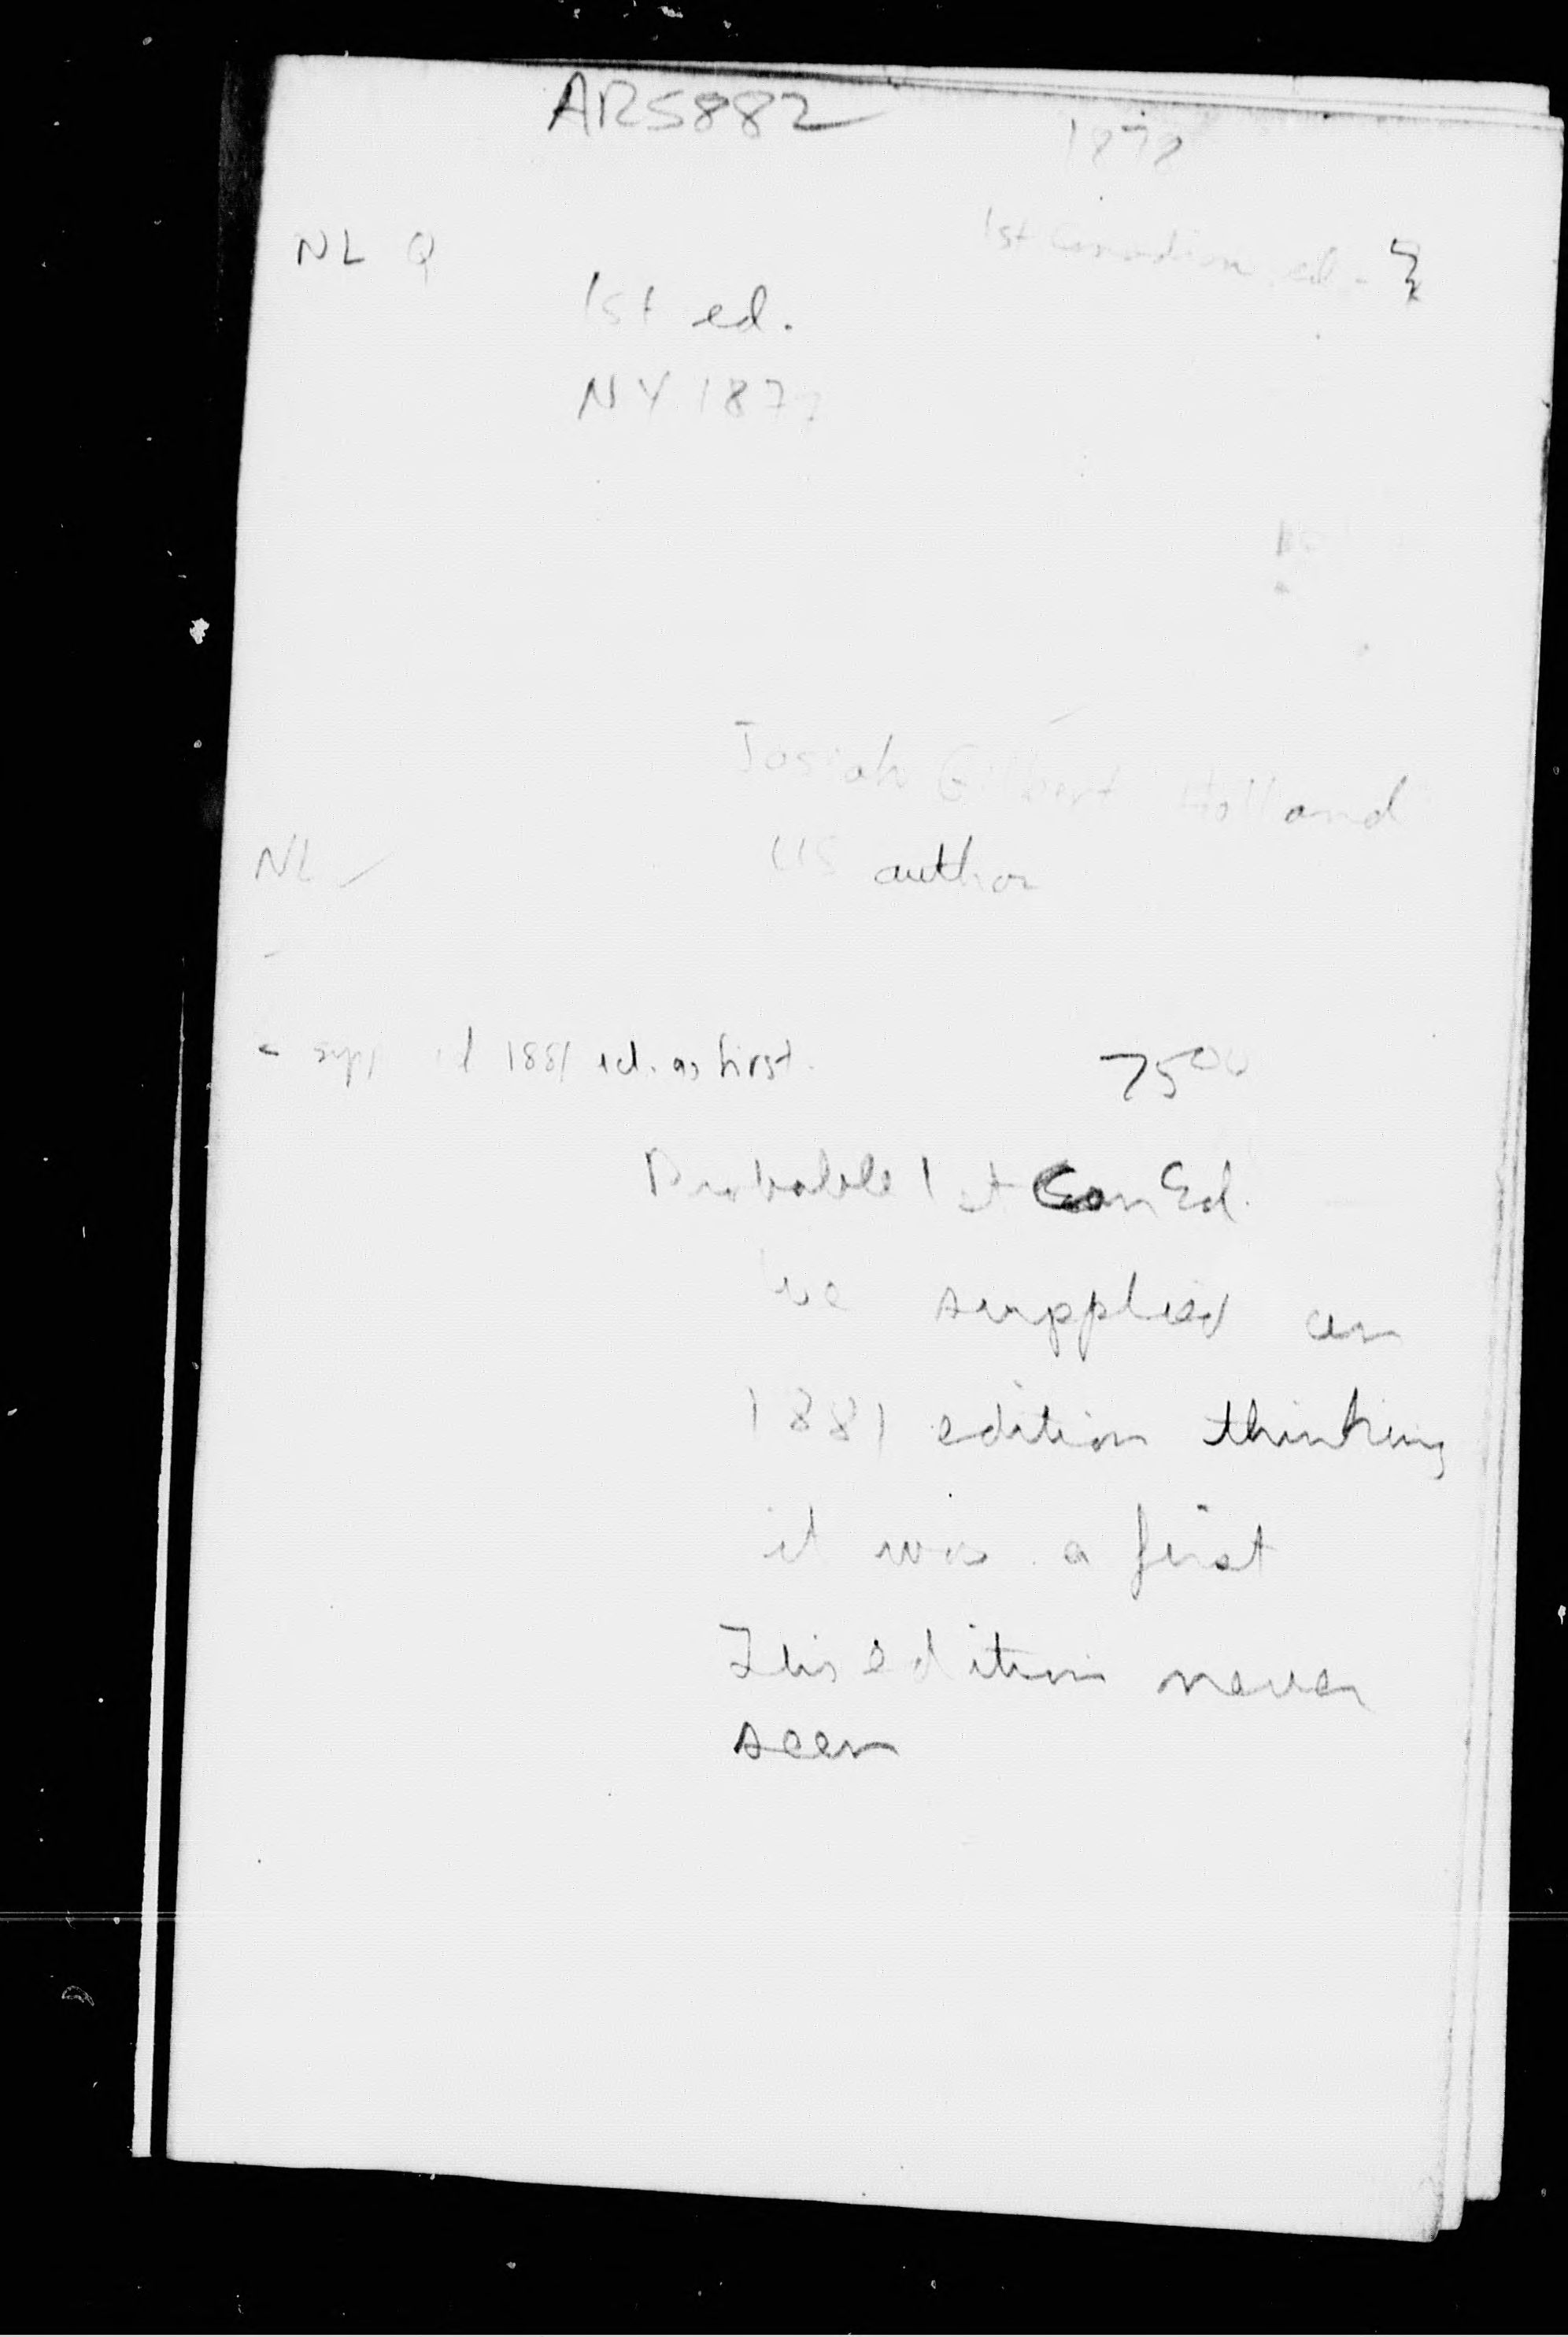 ARS882
1878
NL Q
1st Canadian ed.
1st ed.
NY 1877
Josiah Gilbert Holland
NL
US author
1881 ed. as first.
75 00
Probable 1st Can Ed.
we supplied an
1881 edition thinking
it was a first
This edition never
seen